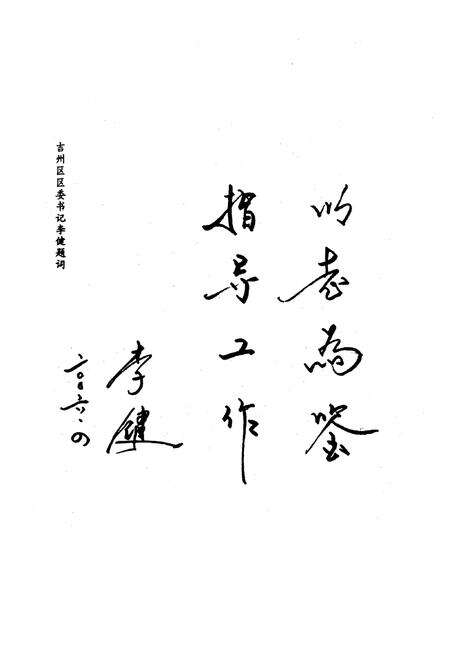 以志為鉴
指导工作
李健
二〇〇六.四
吉州区区委书记李健题词